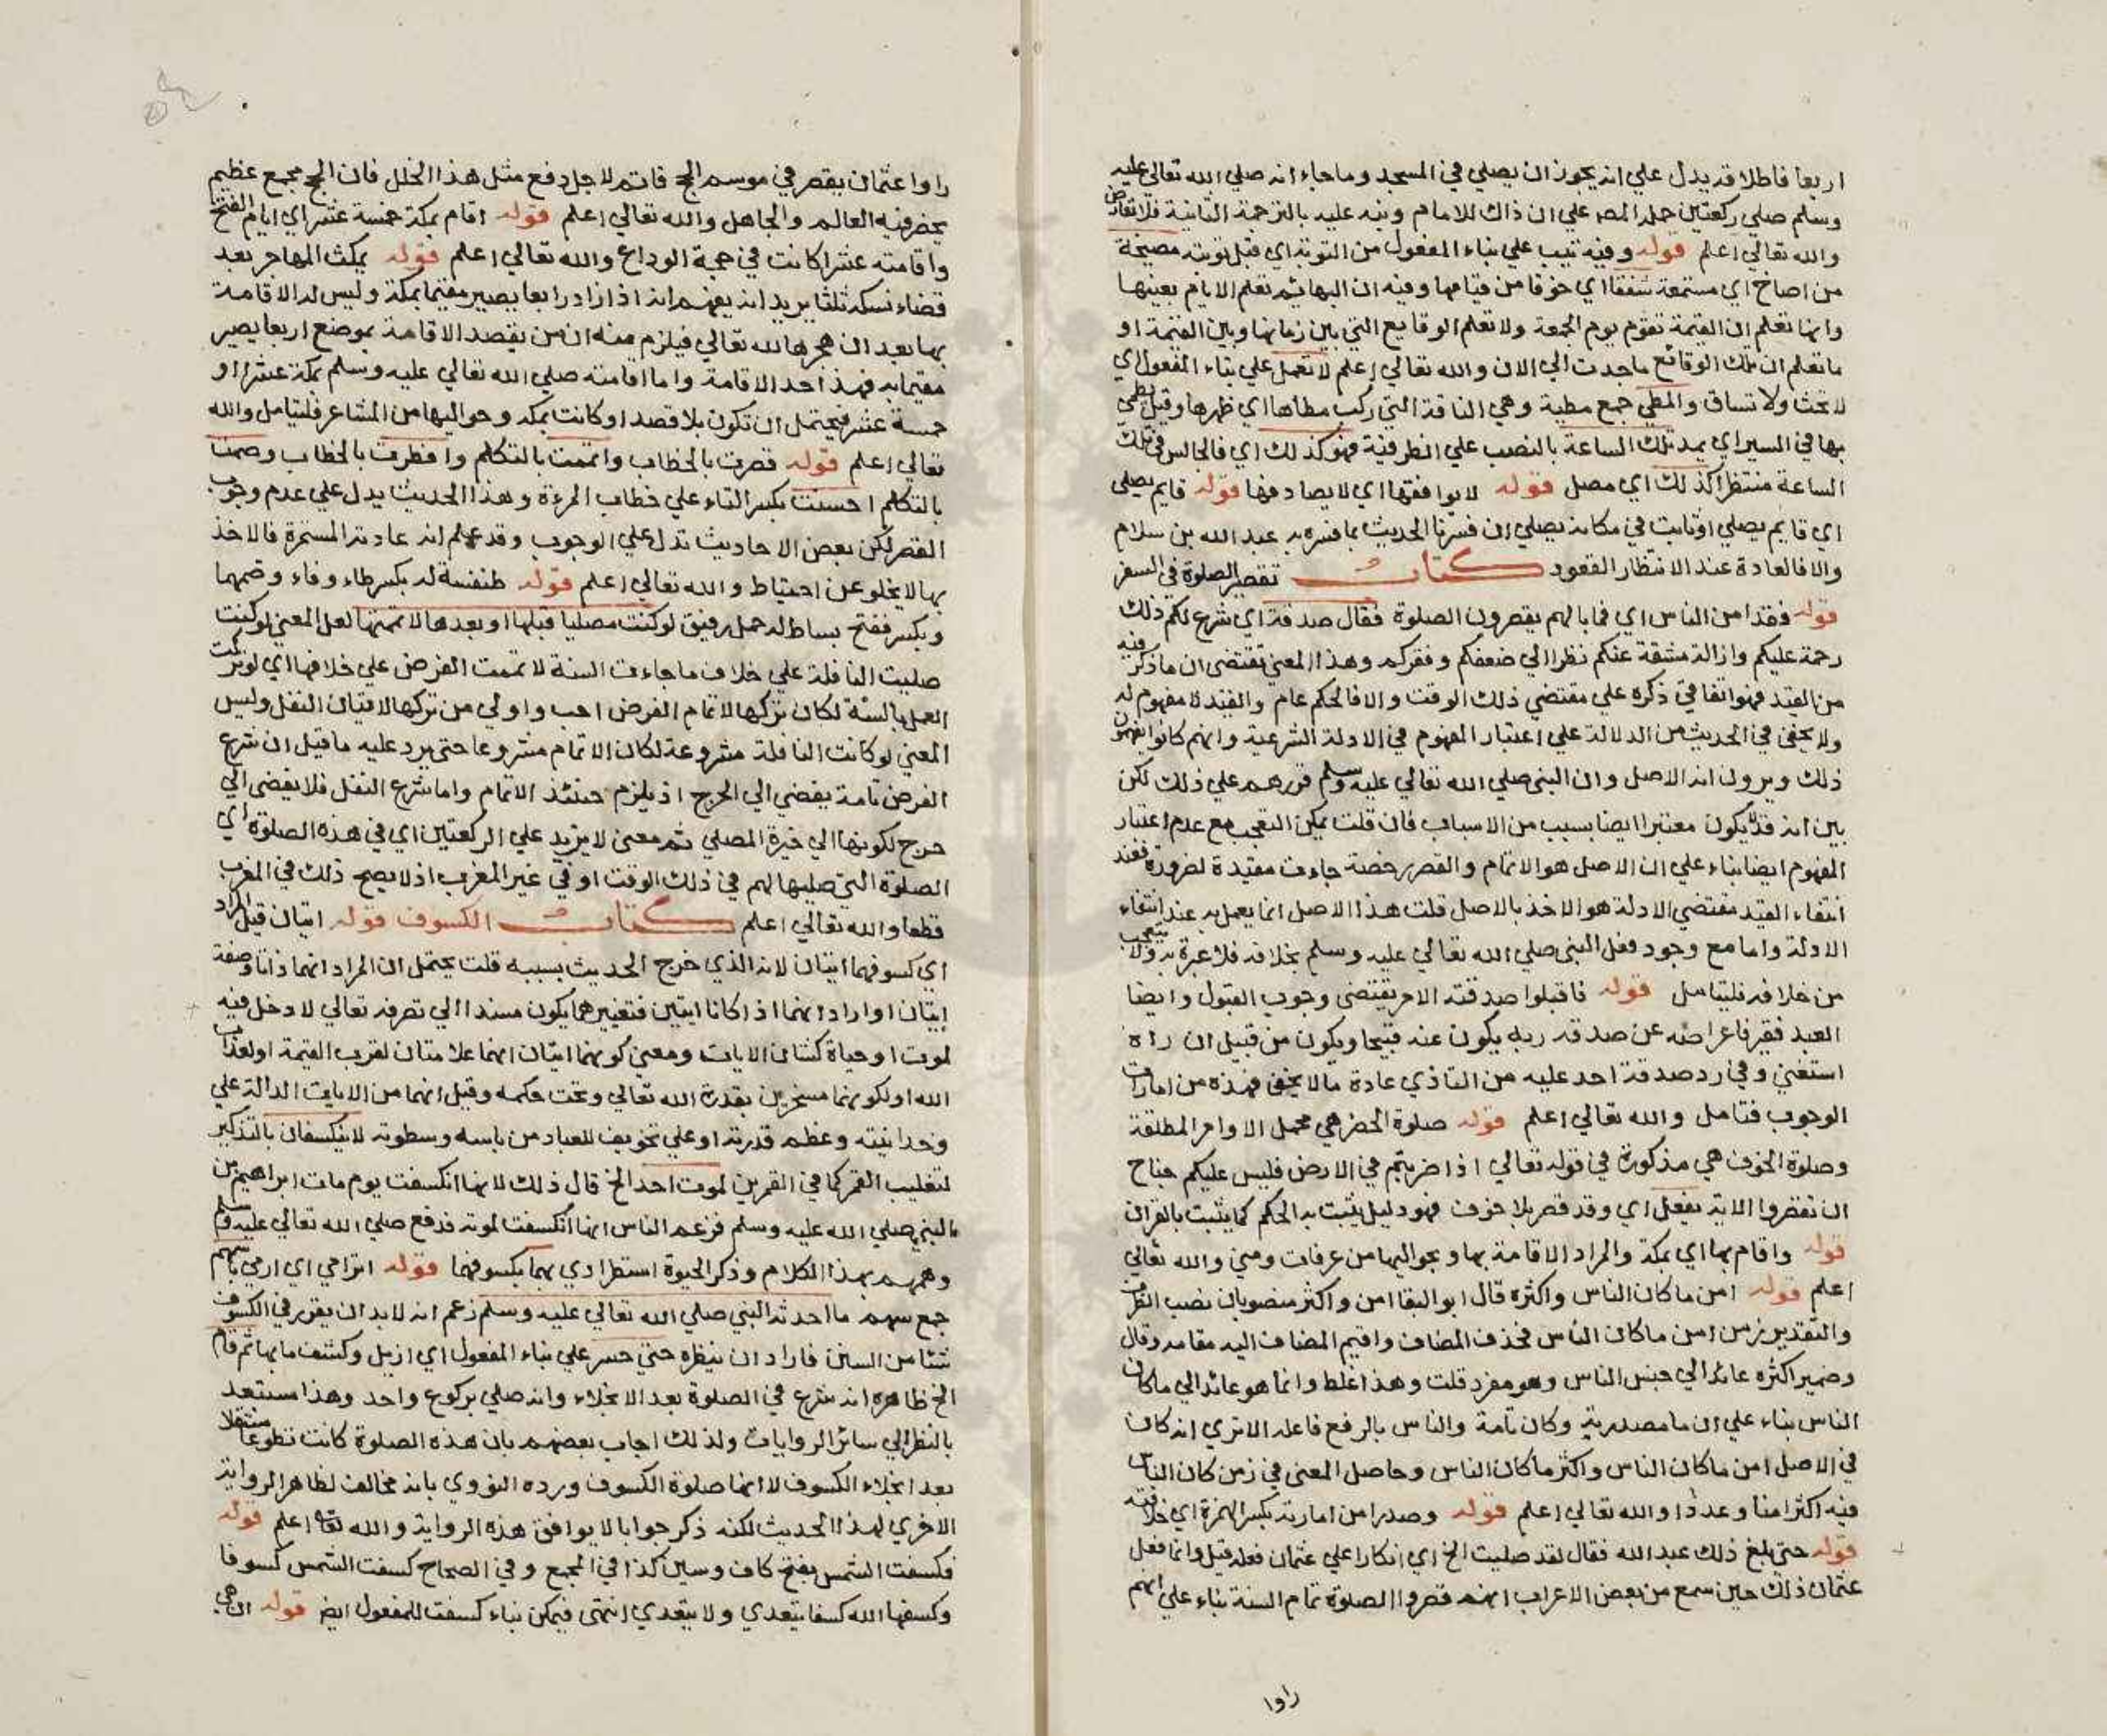 اربعا فاطلاقه يدل علي انه يجوز ان يصلي في المسجد وما جاء انه صلي الله تعالي عليه
وسلم صلي ركعتين حمله المصر علي ان ذاك للامام ونبه عليه بالترجمة الثانية فلا تعارض
والله تعالي اعلم قوله وفيه تيب علي بناء المفعول من التوبة اي قبل توبته مصيخة
من اصاخ اي مستمعة شفقا اي خوفا من قيامها وفيه ان البهائم تعلم الايام بعينها
وانها تعلم ان القيمة تقوم يوم الجمعة ولا تعلم الوقايع التي بين زمانها وبين القيمة او
ما تعلم ان تلك الوقائع ما جدت الي الان والله تعالي اعلم لا تعمل علي بناء المفعول اي
لا تحث ولا تساق والمطي جمع مطية وهي الناقة التي ركب مطاها اي ظهرها وقيل يمطي
بها في السير اي يمد تلك الساعة بالنصب علي الظرفية فهو كذلك اي فالجالس في تلك
الساعة منتظرا كذلك اي مصل قوله لا يوافقها اي لا يصادفها قوله قايم يصلي
اي قايم يصلي او ثابت في مكانه يصلي ان فسرنا الحديث بما فسره به عبد الله بن سلام
والا فالعادة عند الانتظار القعود كتاب تقصير الصلوة في السفر
قوله فقد امن الناس اي فما بالهم يقصرون الصلوة فقال صدقة اي شرع لكم ذلك
رحمة عليكم وازالة مشقة عنكم نظرا الي ضعفكم وفقركم وهذا المعني يقتضي ان ما ذكر فيه
من القيد فهو اتفاقي ذكره علي مقتضي ذلك الوقت والا فالحكم عام والقيد لا مفهوم له
ولا يخفي في الحديث من الدلالة علي اعتبار المفهوم في الادلة الشرعية وانهم كانوا يفهمون
ذلك ويرون انه الاصل وان النبي صلي الله تعالي عليه وسلم قررهم علي ذلك لكن
بين انه قد يكون معتبرا ايضا بسبب من الاسباب فان قلت يمكن التعجب مع عدم اعتبار
المفهوم ايضا بناء علي ان الاصل هو الاتمام والقصر رخصة جاءت مقيدة لضرورة فعند
انتفاء القيد مقتضي الادلة هو الاخذ بالاصل قلت هذا الاصل انما يعمل به عند انتفاء
الادلة واما مع وجود فعل النبي صلي الله تعالي عليه وسلم بخلافه فلا عبرة به ولا يتعجب
من خلافه فليتامل قوله فاقبلوا صدقته الامر يقتضي وجوب القبول وايضا
العبد فقير فاعراضه عن صدقة ربه يكون عنه قبيحا ويكون من قبيل ان راه
استغني وفي رد صدقة احد عليه من التاذي عادة ما لا يخفي فهذه من امارات
الوجوب فتامل والله تعالي اعلم قوله صلوة الحضر هي محمل الاوامر المطلقة
وصلوة الخوف هي مذكورة في قوله تعالي اذا ضربتم في الارض فليس عليكم جناح
ان تقصروا الاية يفعل اي وقد قصر بلا خوف فهو دليل يثبت به الحكم كما يثبت بالقران
قوله واقام بها اي بمكة والمراد الاقامة بها وبحواليها من عرفات ومني والله تعالي
اعلم قوله امن ما كان الناس واكثره قال ابو البقا امن واكثر منصوبان نصب الظرف
والتقدير زمن امن ما كان الناس فحذف المضاف واقيم المضاف اليه مقامه وقال
وضمير اكثره عائد الي جنس الناس وهو مفرد قلت وهذا غلط وانما هو عائد الي ما كان
الناس بناء علي ان ما مصدرية وكان تامة والناس بالرفع فاعله الا تري انه كان
في الاصل امن ما كان الناس واكثر ما كان الناس وحاصل المعني في زمن كان الناس
فيه اكثر امنا وعددا والله تعالي اعلم قوله وصدرا من امارته بكسر الهمزة اي خلافته
قوله حتي بلغ ذلك عبد الله فقال لقد صليت الخ اي انكارا علي عثمان فعله قيل وانما فعل
عثمان ذلك حين سمع من بعض الاعراب انهم قصروا الصلوة تمام السنة بناء علي انهم
راوا
راوا عثمان يقصر في موسم الحج فاتم لاجل دفع مثل هذا الخلل فان الحج مجمع عظيم
يحضر فيه العالم والجاهل والله تعالي اعلم قوله اقام بمكة خمسة عشر اي ايام الفتح
واقامته عشرا كانت في حجة الوداع والله تعالي اعلم قوله يمكث المهاجر بعد
قضاء نسكه ثلثا يريد انه يفهم انه اذا زاد رابعا يصير مقيما بمكة وليس له الاقامة
بها بعد ان هجرها لله تعالي فيلزم منه ان من يقصد الاقامة بموضع اربعا يصير
مقيما به فهذا احد الاقامة واما اقامته صلي الله تعالي عليه وسلم بمكة عشرا او
خمسة عشر فيحتمل ان تكون بلا قصد او كانت بمكة وحواليها من المشاعر فليتامل والله
تعالي اعلم قوله قصرت بالخطاب واتممت بالتكلم وافطرت بالخطاب وصمت
بالتكلم احسنت بكسر التاء علي خطاب المرءة وهذا الحديث يدل علي عدم وجوب
القصر لكن بعض الاحاديث تدل علي الوجوب وقد علم انه عادته المستمرة فالاخذ
بها لا يخلو عن احتياط والله تعالي اعلم قوله طنفسة له بكسر طاء وفاء وضمهما
وبكسر ففتح بساط له خمل رقيق لو كنت مصليا قبلها او بعدها لاتممتها لعل المعني لو كنت
صليت النافلة علي خلاف ما جاءت السنة لاتممت الفرض علي خلافها اي لو تركت
العمل بالسنة لكان تركها لاتمام الفرض احب واولي من تركها لاتيان النفل وليس
المعني لو كانت النافلة مشروعة لكان الاتمام مشروعا حتي يرد عليه ما قيل ان شرع
الفرض تامة يفضي الي الحرج اذ يلزم حينئذ الاتمام واما شرع النفل فلا يفضي الي
حرج لكونها الي خيرة المصلي ثم معني لا يزيد علي الركعتين اي في هذه الصلوة اي
الصلوة التي صليها لهم في ذلك الوقت او في غير المغرب اذ لا يصح ذلك في المغرب
قطعا والله تعالي اعلم كتاب الكسوف قوله ايتان قيل المراد
اي كسوفهما ايتان لانه الذي خرج الحديث بسببه قلت يحتمل ان المراد انهما ذاتا وصفة
ايتان او اراد انهما اذا كانا ايتين فتغييرهما يكون مسندا الي تصرفه تعالي لا دخل فيه
لموت او حياة كشان الايات ومعني كونهما ايتان انهما علامتان لقرب القيمة او لعذاب
الله او لكونهما مسخرين بقدرة الله تعالي وتحت حكمه وقيل انهما من الايات الدالة علي
وحدانيته وعظم قدرته او علي تخويف للعباد من باسه وسطوته لا ينكسفان بالتذكير
لتغليب القمر كما في القمرين لموت احد الخ قال ذلك لانها انكسفت يوم مات ابراهيم بن
النبي صلي الله عليه وسلم فزعم الناس انها انكسفت لموته فدفع صلي الله تعالي عليه وسلم
وهمهم بهذا الكلام وذكر الحيوة استطرادي بهما بكسوفهما قوله اترامي اي ارمي باسهم
جمع سهم ما احدثه النبي صلي الله تعالي عليه وسلم زعم انه لا بد ان يقرر في الكسوف
شيئا من السنن فاراد ان ينظره حتي حسر علي بناء المفعول اي ازيل وكشف ما بها ثم قام
الخ ظاهره انه شرع في الصلوة بعد الانجلاء وانه صلي بركوع واحد وهذا مستبعد
بالنظر الي سائر الروايات ولذلك اجاب بعضهم بان هذه الصلوة كانت تطوعا مستقلا
بعد انجلاء الكسوف لا انها صلوة الكسوف ورده النووي بانه مخالف لظاهر الرواية
الاخري لهذا الحديث لكنه ذكر جوابا لا يوافق هذه الرواية والله تعالي اعلم قوله
فكسفت الشمس بفتح كاف وسين كذا في المجمع وفي الصحاح كسفت الشمس كسوفا
وكسفها الله كسفا يتعدي ولا يتعدي انتهي فيمكن بناء كسفت للمفعول ايضا قوله ان هي